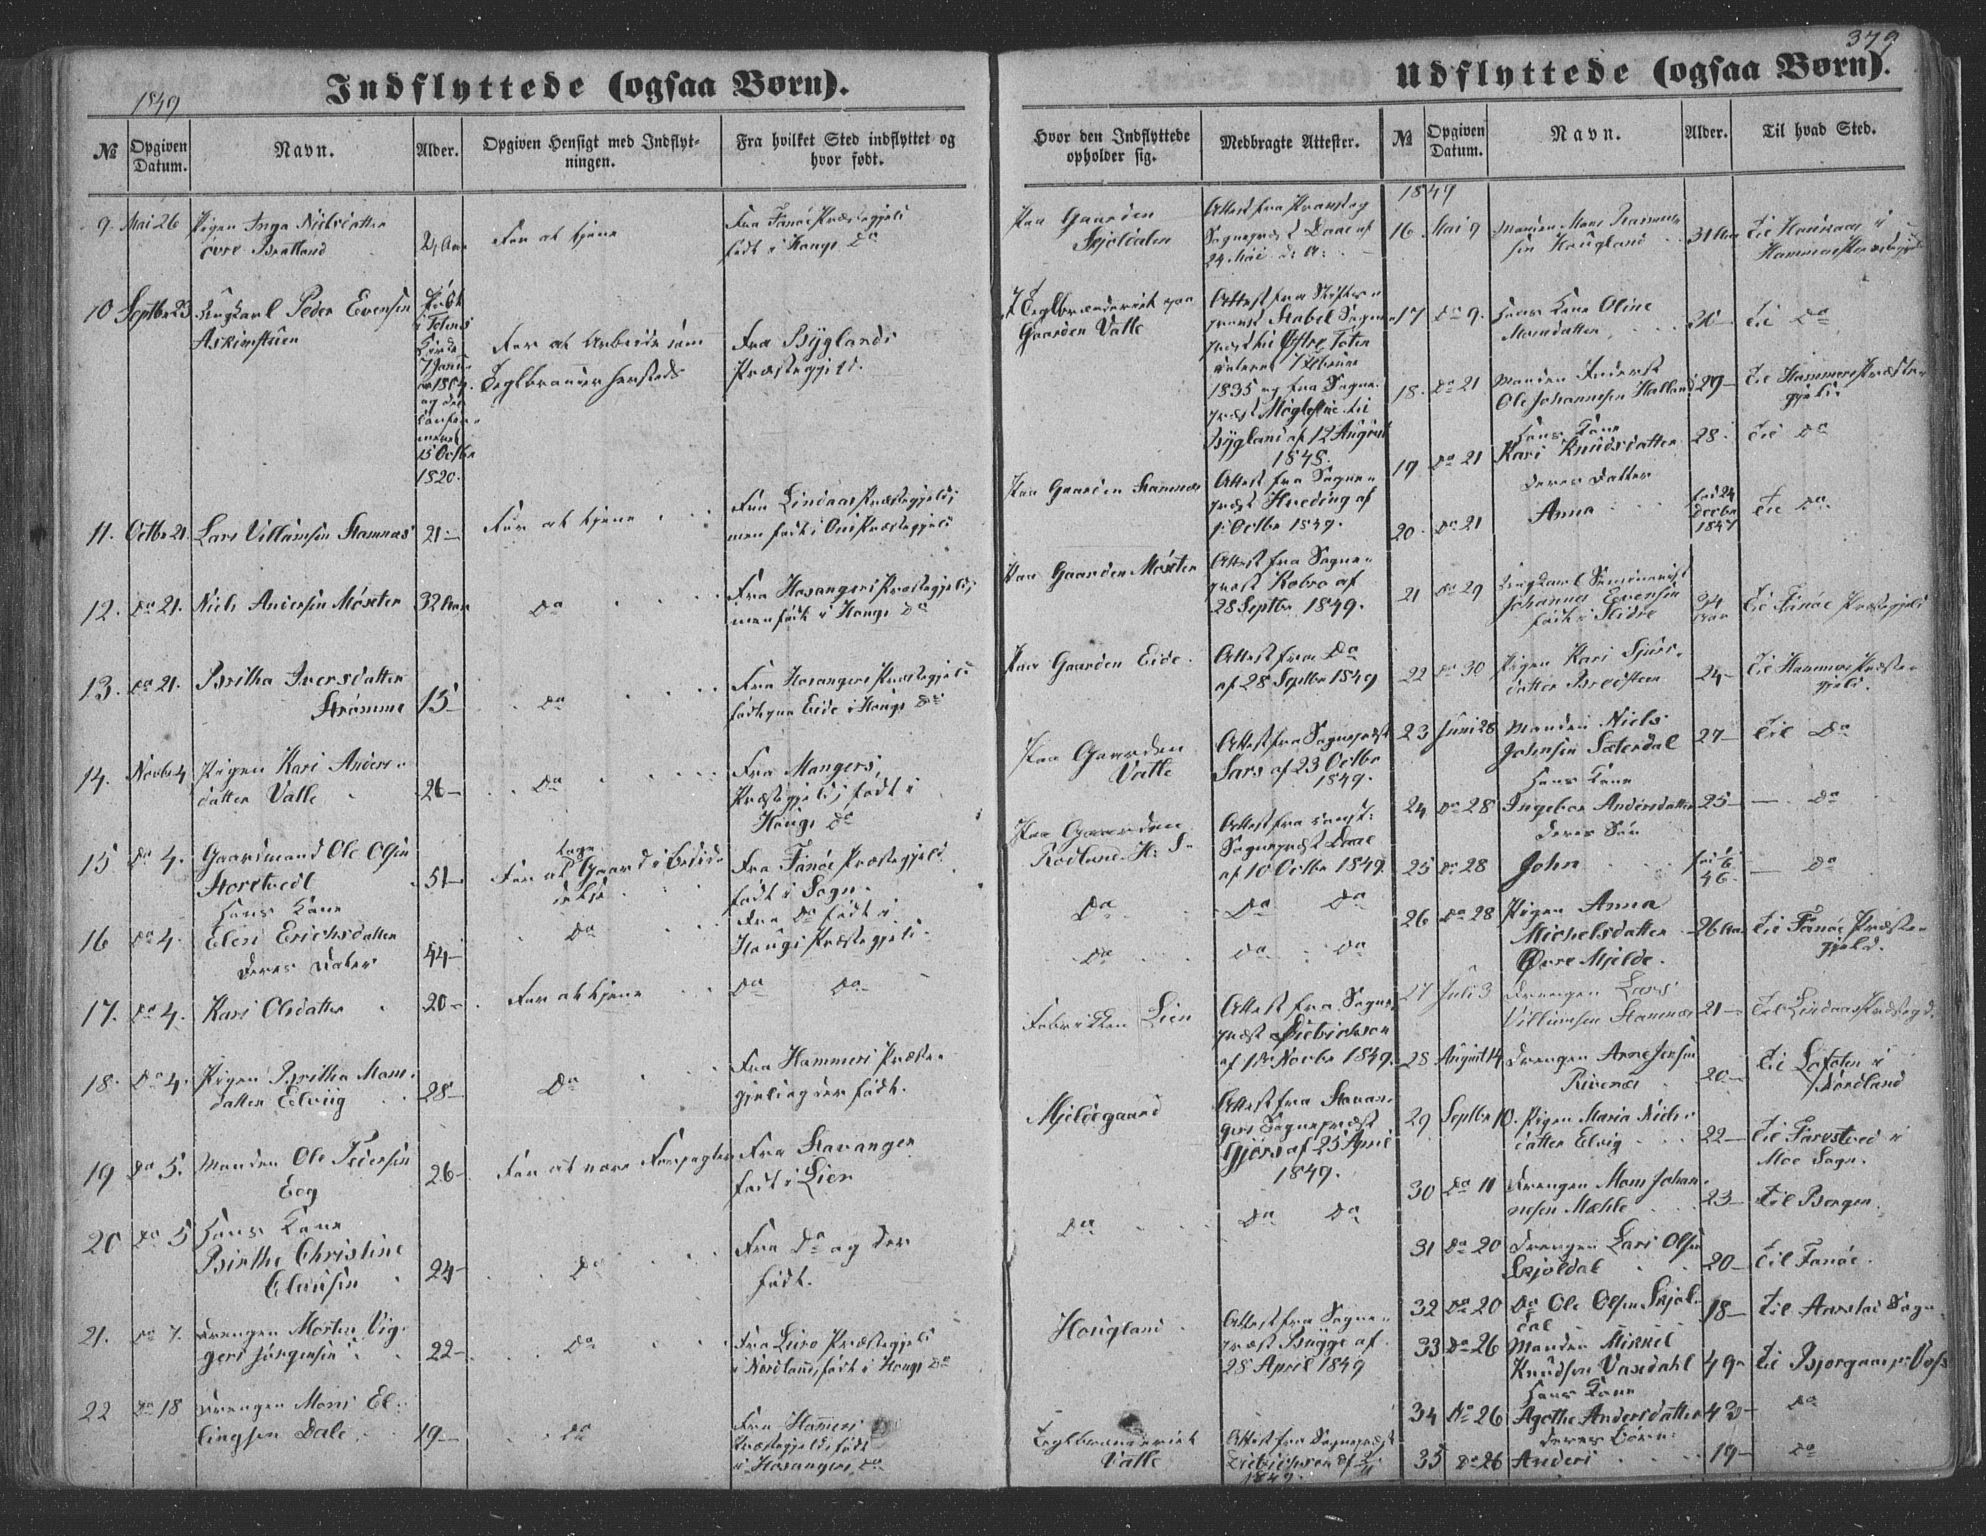 379
Indflyttede (ogsaa Børn).
1849
№
Opgiven Datum.
Navn.
Alder.
Opgiven Hensigt med Indflytningen.
Fra hvilket Sted indflyttet og hvor født.
Hvor den Indflyttede opholder sig.
Medbragte Attester.
9. Mai 26 Pigen Inga Nielsdatter
øvre Bratland
For at tjene
Fra Fanøe Præstegjeld
født i Haugs Do
Paa Gaarden
Skjoldalen
Sognepræst Daae af
24 Mai d: A:
10 Septbr 23 Ungkarl Peder Evensen
Askimstuen
Født
i Totens
7 Janu
ar 1804.
og der
Confir-
meret
15 Octbr
1820.
For at Arbeide som
Teglbrænder hersteds
Fra Byglands
Præstegjeld.
Teglbrænderiet paa
Gaarden Valle
Attest fra
Stabel Sogne-
præst til Østre Toten
dateret 7 Februar
1835 og fra Sogne-
præst Møglestue til
Bygland af 12 August
1848.
11. Octbr 21. Lars Villumsen Stamnæs 21-
For at tjene
Fra Lindaas Præstegjeld;
men født i Ous Præstegjeld
Paa Gaarden Stamnæs
Attest fra Sogne-
præst Hveding af
1 Octbr 1849.
12. Do 21. Niels Andersen Møster 32 Aar
Do
Fra Hosangers Præstegjeld;
men født i Haugs Do
Paa Gaarden Møster
Attest fra Sogne-
præst Kobro af
28 Septbr 1849.
13. Do 21. Britha Iversdatter
Strømme 15-
Do
Fra Hosangers Præstegjeld
født paa Eide i Haugs Do
Paa Gaarden Eide.
Attest fra Do
af 28 Septbr 1849
14. Novbr 4 Pigen Kari Anders-
datter Valle 26-
Do
Fra Mangers
Præstegjeld; født i
Haugs Do
Paa Gaarden
Valle
Attest fra Sognepræst
Sars af 23 Octbr
1849.
15 Do 4. Gaardmand Ole Olsen
Storetvedt 51-
Fra Fanøe Præstegjeld
født i Sogn.
Paa Gaarden
Rødland H: S-
Attest fra const:
Sognepræst Daae
af 10 Octbr 1849.
16 Do 4. Hans Kone
Eleri Erichsdatter 44-
Do
Fra Do født i
Haugs Præstegjeld.
Do
Do Do
Deres Datter
17. Do 4. Kari Olsdatter 20-
For at tjene
Do Do
Do
Do Do
18. Do 4. Pigen Britha Mons-
datter Eelviig 28-
Do
Fra Hammers Præste-
gjeld og der født.
Fabrikken Lien
Attest fra Sogne-
præst Dietrichson
af 1ste Novbr 1849.
19 Do 5. Manden Ole Pedersen
Eeg 26-
For at være Forpagter
Fra Stavanger
født i Lien
Mjeldegaard
Attest fra Stavan-
gers Sognepræst
Gjørs af 25 April
1849.
20 Do 5 Hans Kone
Birthe Christine
Clausen 24-
Do
Fra Do og der
født.
Do
Do Do
21. Do 7. Drengen Morten Vig-
gers Jørgensen 22-
Do
Fra Lurø Præstegjeld
i Nordland, født i Haugs Do
Hougland
Attest fra Sogne-
præst Bygge af
28 April 1849
22 Do 18 Drengen Mons El-
lingsen Dale 19-
Do
Fra Hamers
Præstegjeld født
i Hosangers Do
Teglbrænderiet
Valle
Attest fra Sognepræst
Dietrichson af
1849.
Udflyttede (ogsaa Børn).
№
Opgiven Datum.
Navn.
Alder.
Til hvad Sted.
1849
16 Mai 9 Manden Mons Rasmus-
sen Hougland 31 Aar
Hammers Præstegjeld
17 Do 9. Hans Kone Oline
Monsdatter 26- Til Do
18. Do 21 Manden Inderst
Ole Johannesen Halland 29- Til Hammers Præste-
gjeld.
19 Do 21 Hans Kone
Kari Knudsdatter 28. Til Do
Deres Datter
20. Do 21 Anna fød 24
Decbr
1847 Til Do
21 Do 29 Ungkarl Seminarist
Johannes Evensen
født i Slidre 34
Aar Til Fanøe Præstegjeld
22 Do 30 Pigen Kari Sjurs-
datter Bredsteen 24- Til Hammers Præste-
gjeld.
23 Juni 28 Manden Niels
Johnsen Sæterdal 27- Til Do
24 Do 28 Hans Kone
Ingebor Andersdatter 25- - Do
Deres Søn
25 Do 28 John - Do
26 Do 28 Pigen Anna
Michelsdatter
Øvre Mjelde. 26 Aar Til Fanøe Præste-
gjeld.
27 Juli 3 Drengen Lars
Villumsen Stamnæs 21- Til Lindaas Præstegd.
28 August 14 Drengen Arne Jensen
Rivenæs 20- Til Lofoten i
Nordland
29 Septbr 10. Pigen Maria Niels-
datter Elvig 22- Til Tarvstved i
Moe Sogn.
30 Do 11 Drengen Mons Johan-
nesen Mæhle 23- Til Bergen
31 Do 20 Drengen Lars Olsen
Skjoldal 20- Til Fanøe.
32 Do 20 Do Ole Olsen Skjol-
dal 18- Til Aarstad Sogn
33 Do 26 Manden Mikkel
Knudsen Vasdahl 49- Til Bjorgum p: Voss
34 Do 26 Hans Kone
Agathe Andersdatter 43- Do
Deres Børn:
35 Do 26 Anders 19- Do